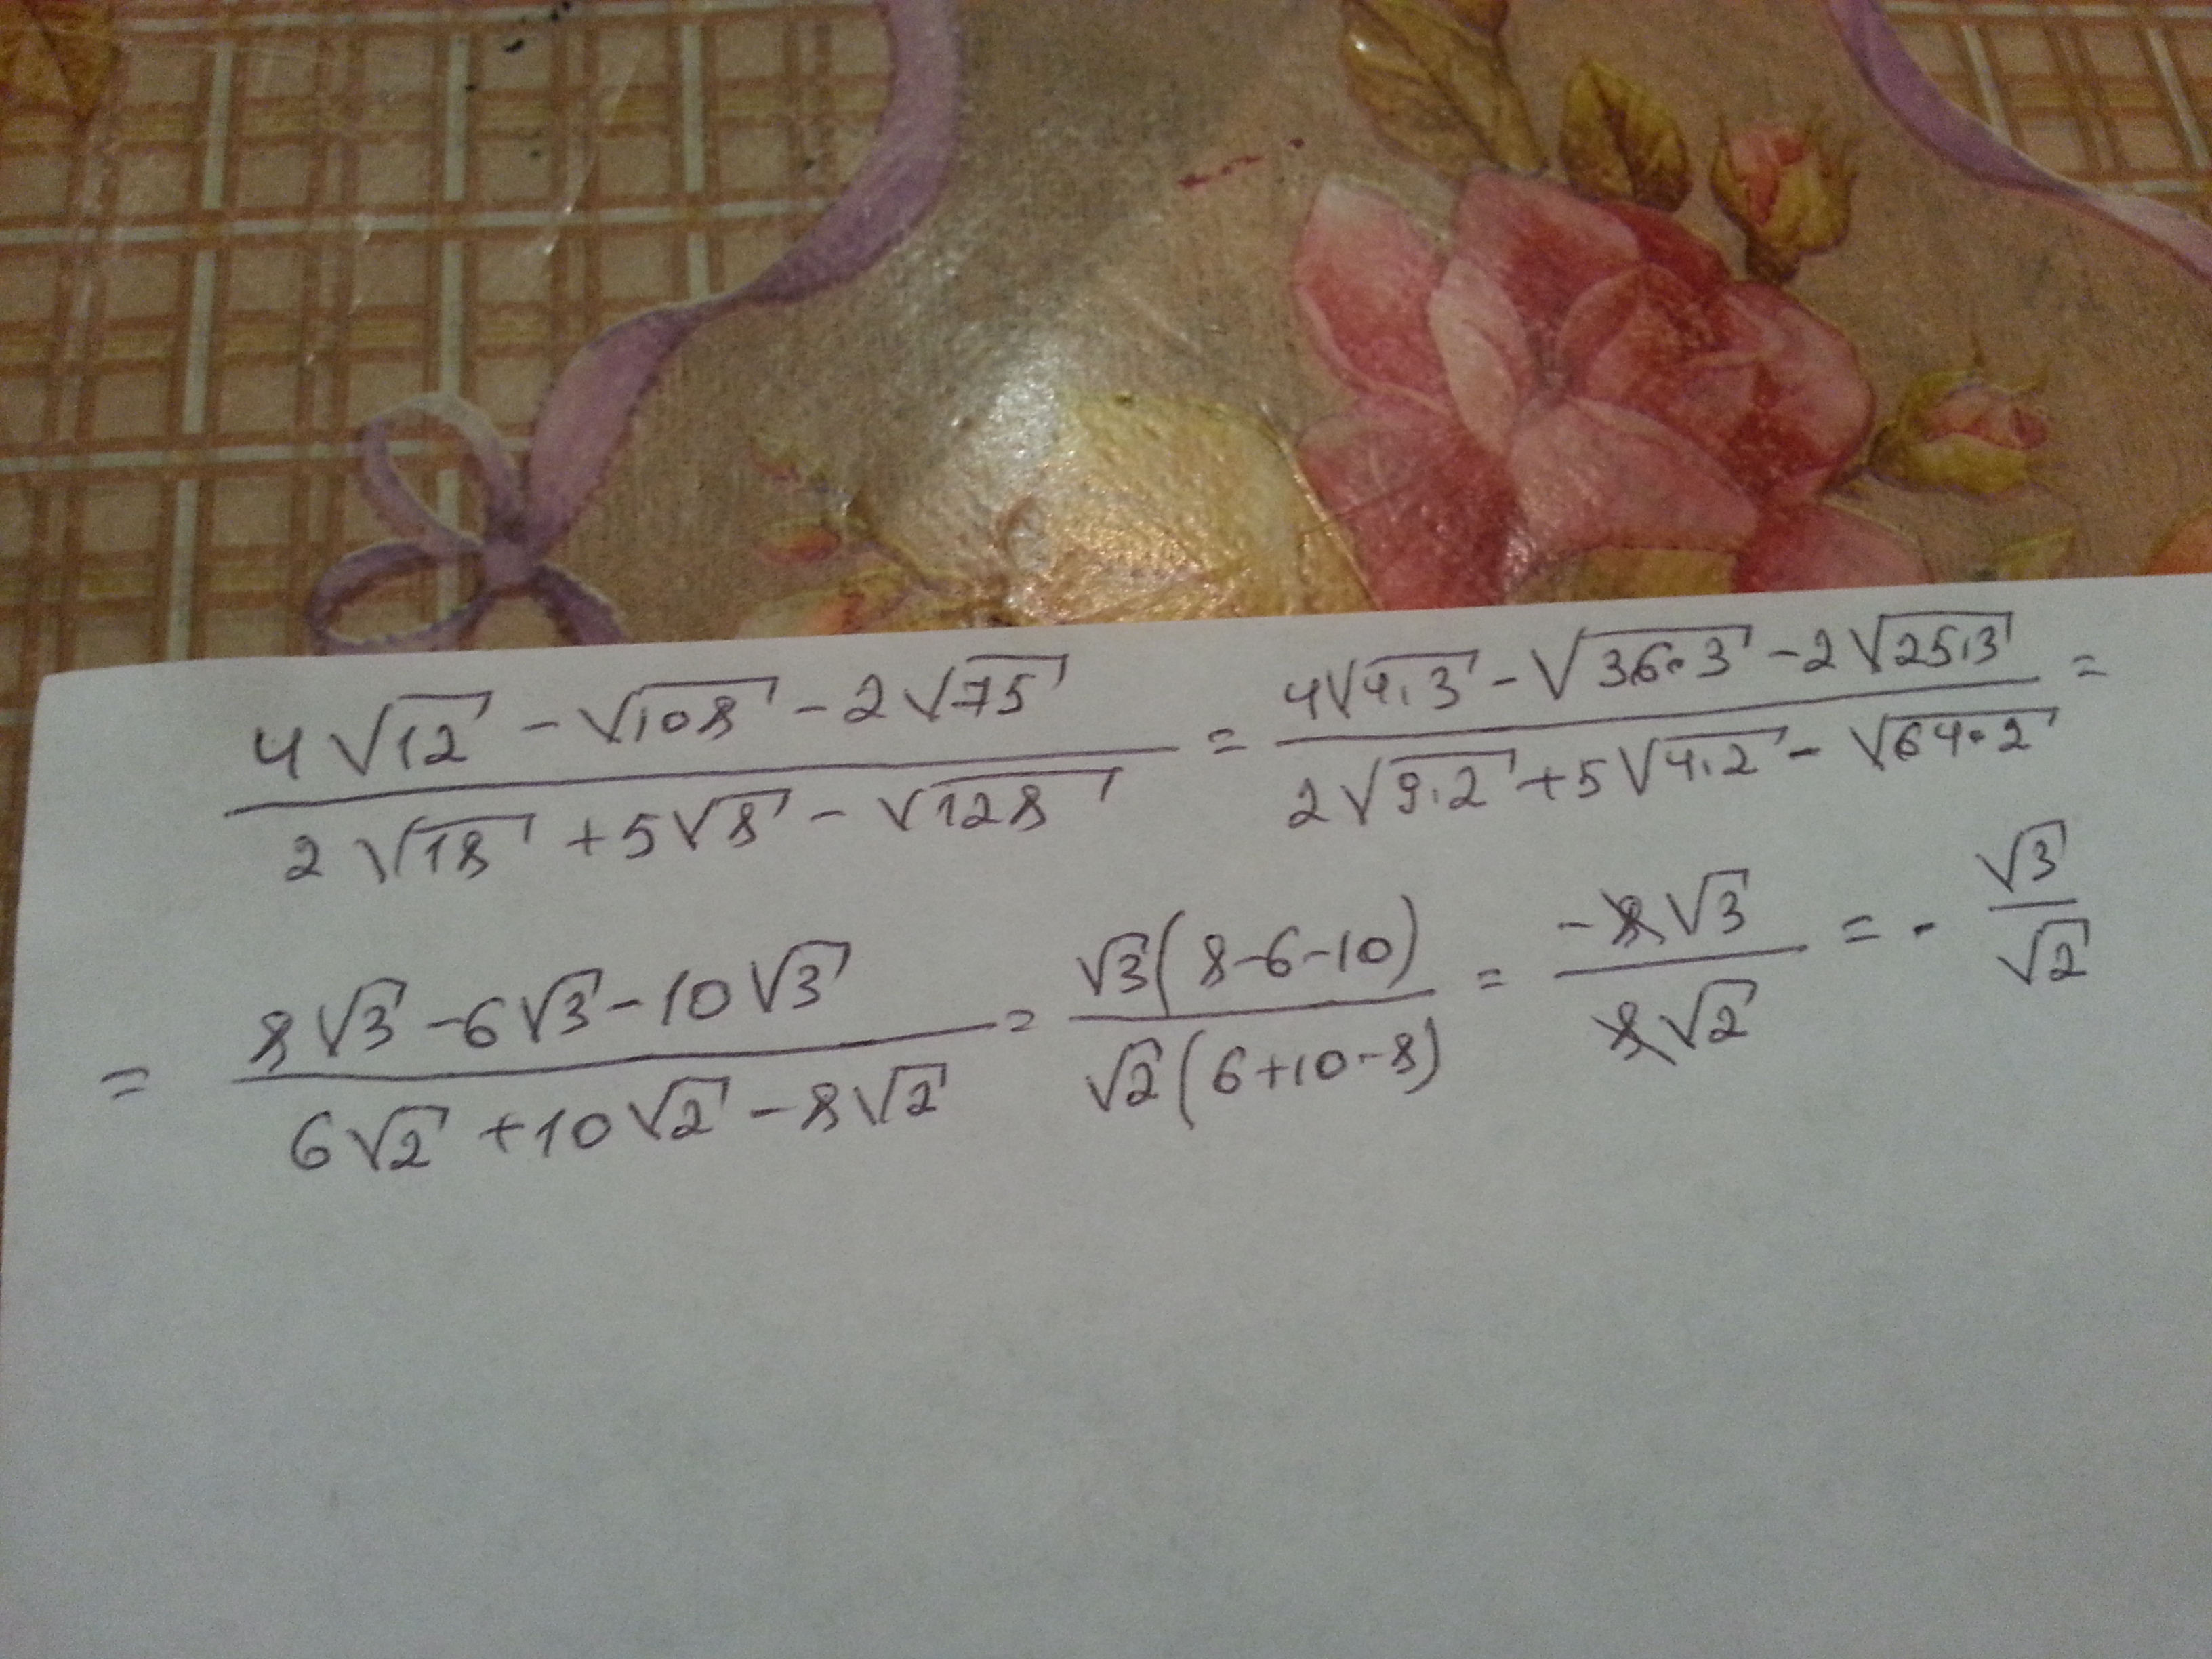 (4√12 - √108 - 2√75)/(2√18 + 5√8 - √128) = (4√(4·3) - √(36·3) - 2√(25·3))/(2√(9·2) + 5√(4·2) - √(64·2)) =
= (8√3 - 6√3 - 10√3)/(6√2 + 10√2 - 8√2) = √3(8-6-10)/√2(6+10-8) = -8√3/8√2 = - √3/√2